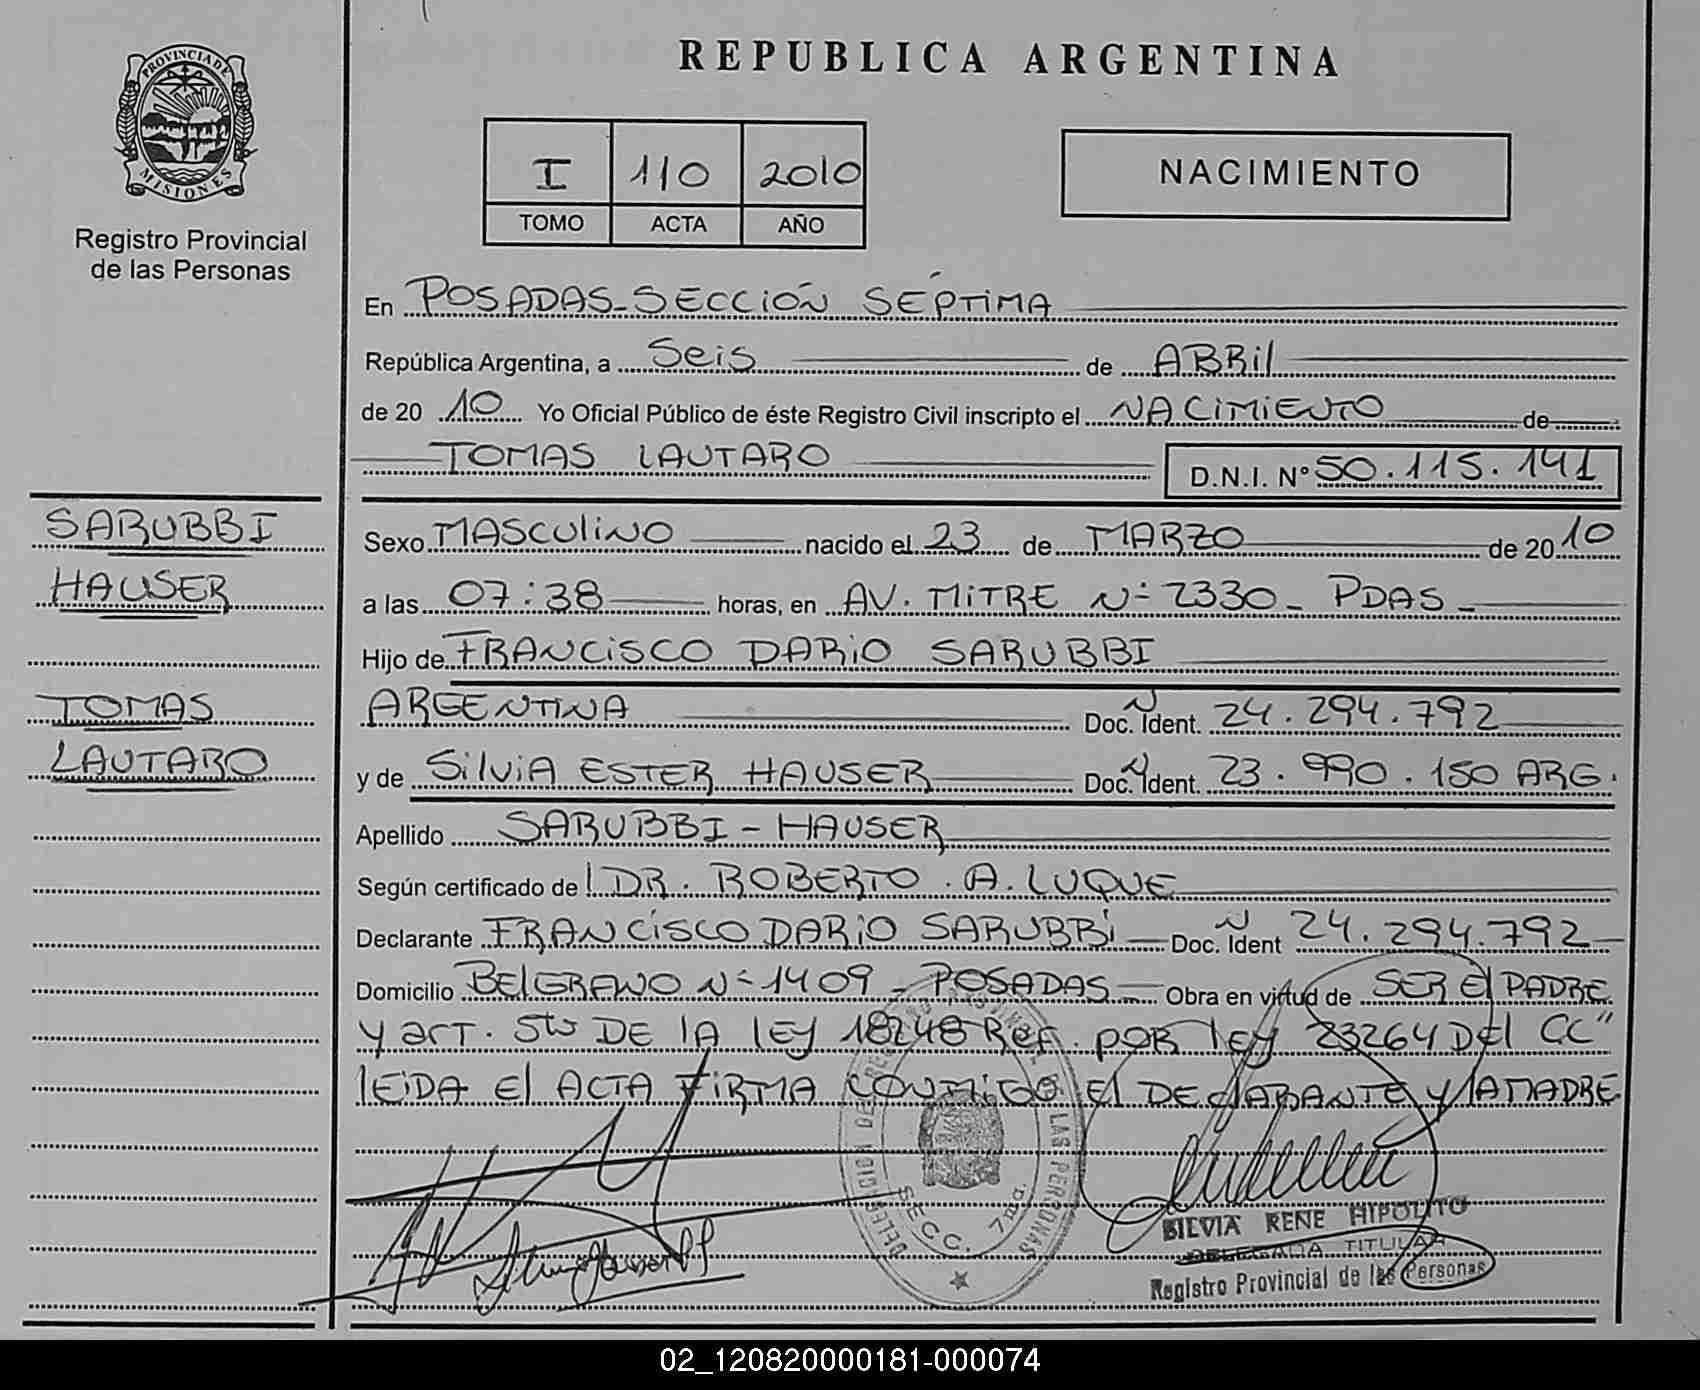 PROVINCIA DE
MISIONES
Registro Provincial
de las Personas
REPUBLICA ARGENTINA
I 110 2010
TOMO ACTA AÑO
NACIMIENTO
En POSADAS-SECCIÓN SÉPTIMA
República Argentina, a Seis de ABRil
de 20 10 Yo Oficial Público de éste Registro Civil inscripto el NACIMIENTO de
TOMAS LAUTARO D.N.I. N° 50.115.141
SARUBBI
HAUSER
TOMAS
LAUTARO
Sexo MASCULINO nacido el 23 de MARZO de 20 10
a las 07:38 horas, en AV. MITRE Nº 2330 - PDAS -
Hijo de FRANCISCO DARIO SARUBBI
ARGENTINA Doc. Ident. 24.294.792
y de SILVIA ESTER HAUSER Doc. Ident. 23.990.150 ARG.
Apellido SARUBBI - HAUSER
Según certificado de DR. ROBERTO . A. LUQUE
Declarante FRANCISCO DARIO SARUBBI Doc. Ident 24.294.792
Domicilio BELGRANO Nº 1409 - POSADAS Obra en virtud de SER El PADRE
y arT. 5to DE lA lEY 18248 Ref. POR lEY 23264 DEl CC"
lEIDA El ACTA FIRMA CONMIGO El DEClARANTE Y lA MADRE
DELEGACION DEL REGISTRO PROVINCIAL DE LAS PERSONAS
SECC. 7ma.
SILVIA RENE HIPOLITO
DELEGADA TITULAR
Registro Provincial de las Personas
02_120820000181-000074